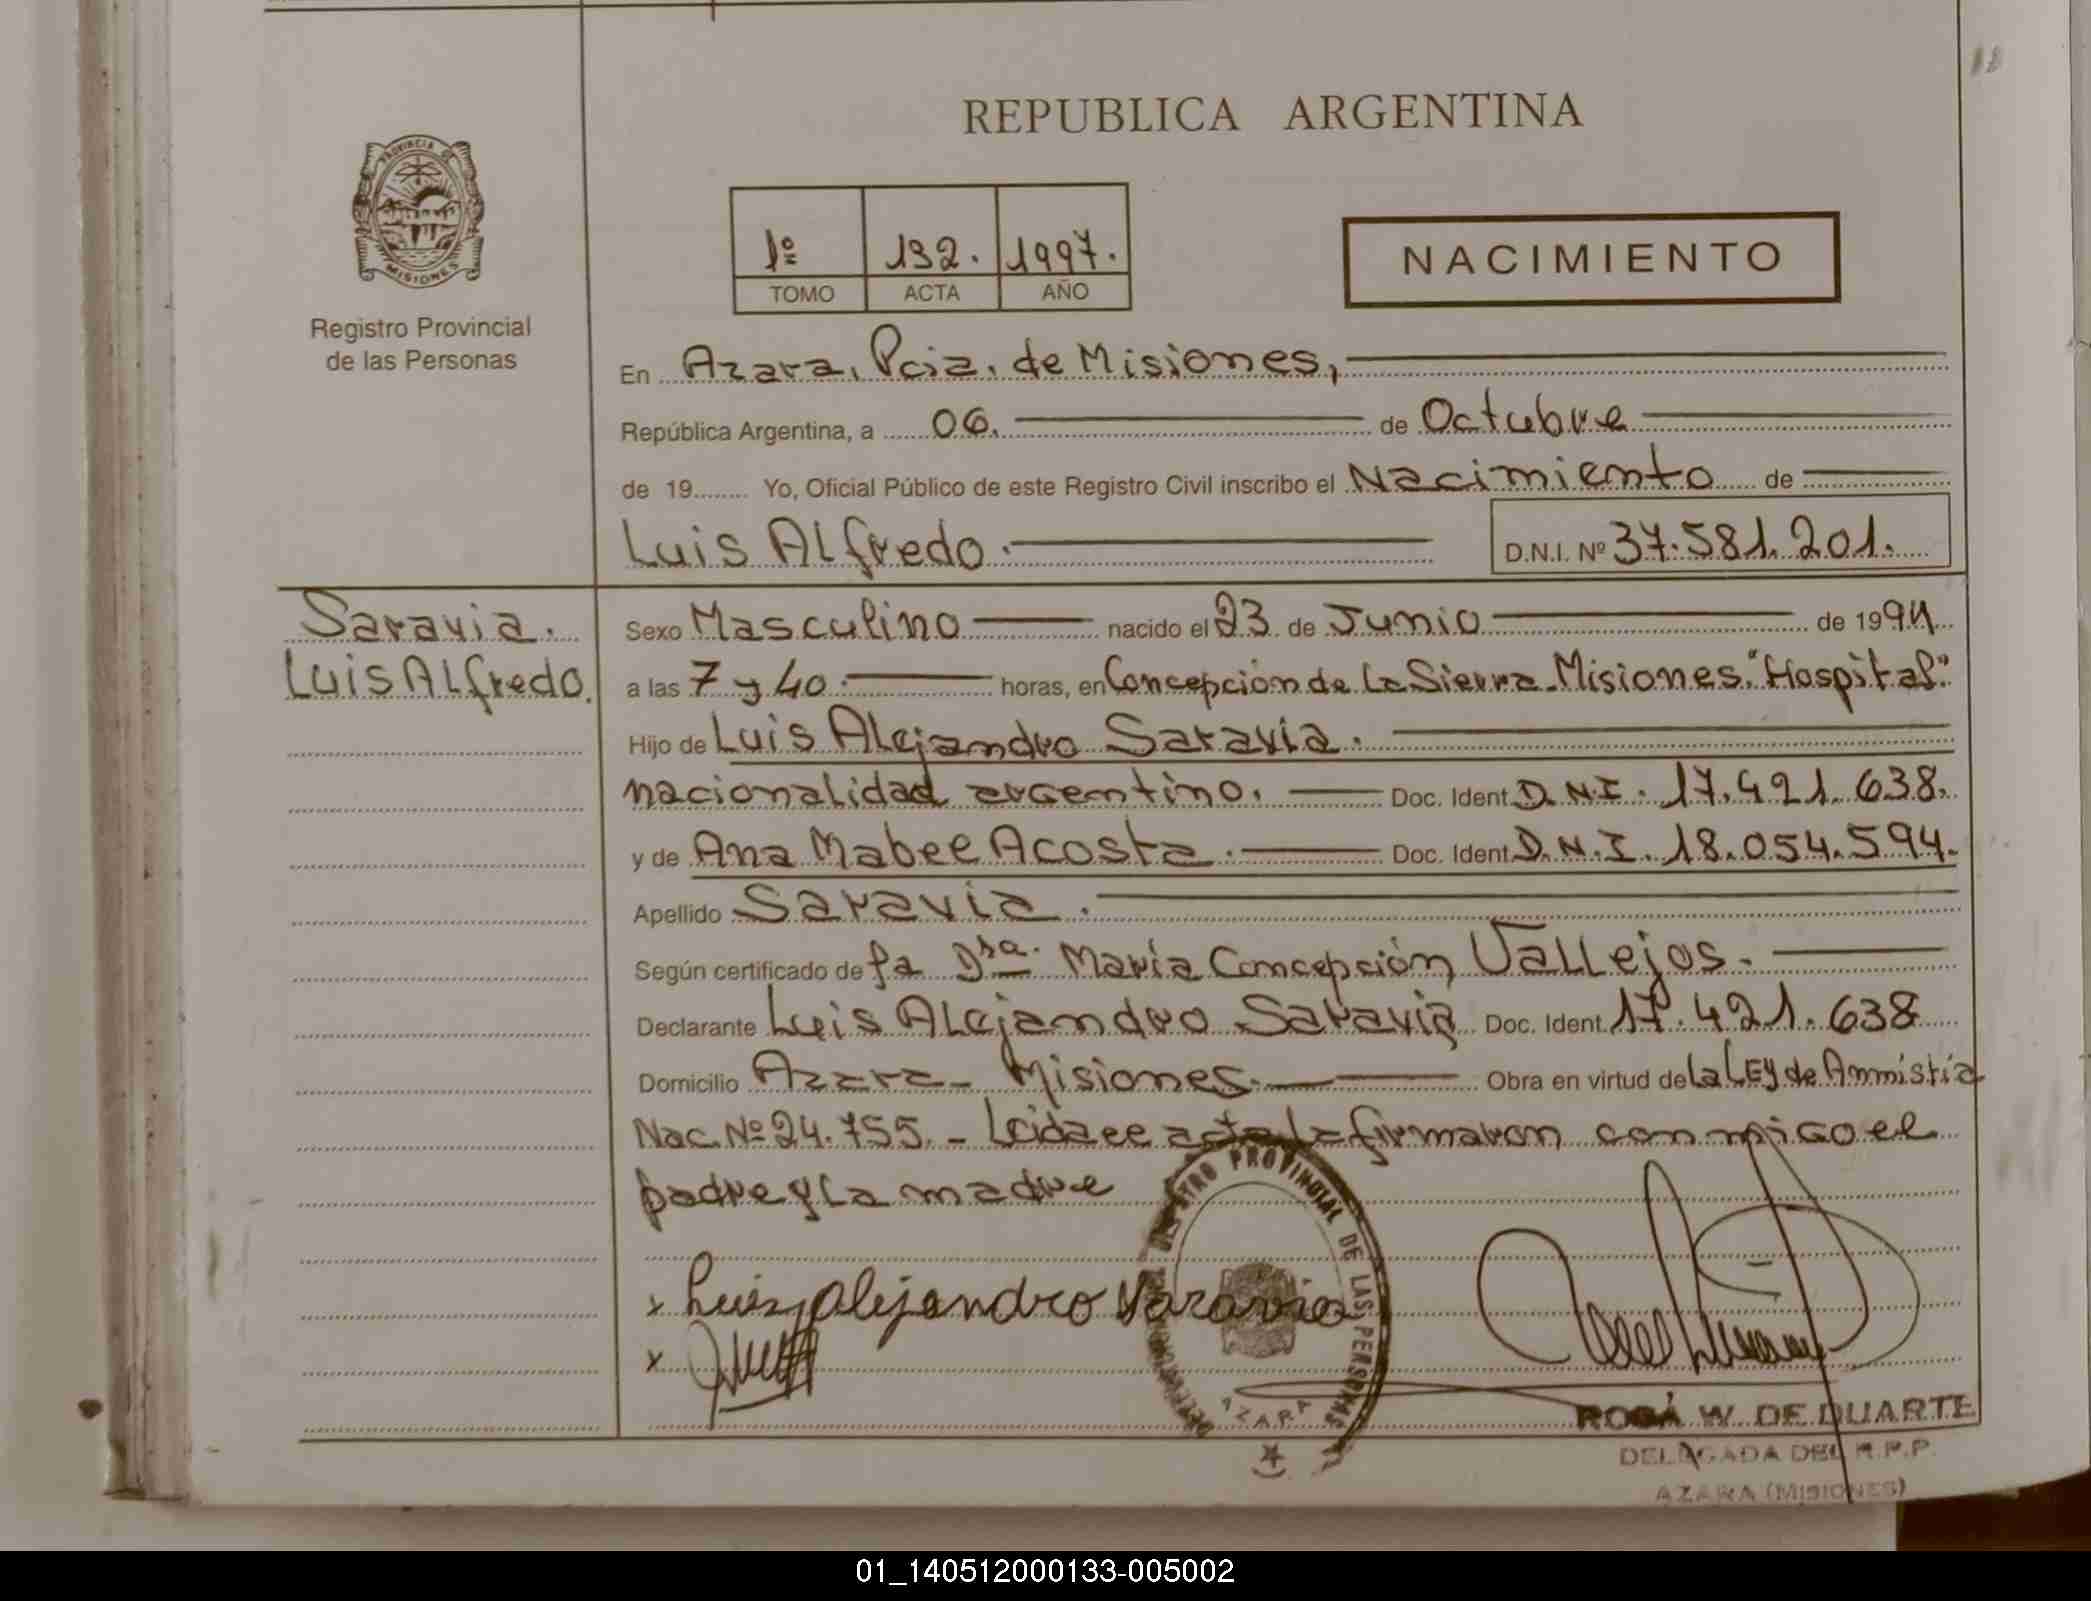 REPUBLICA ARGENTINA
PROVINCIA DE
MISIONES
Registro Provincial
de las Personas
1º 132. 1997.
TOMO ACTA AÑO
NACIMIENTO
En Azara, Pcia. de Misiones,
República Argentina, a 06. de Octubre
de 19 Yo, Oficial Público de este Registro Civil inscribo el Nacimiento de
Luis Alfredo. D.N.I. Nº 37.581.201.
Saravia.
Luis Alfredo.
Sexo Masculino nacido el 23 de Junio de 1994
a las 7 y 40. horas, en Concepción de la Sierra-Misiones. "Hospital"
Hijo de Luis Alejandro Saravia.
nacionalidad argentino. Doc. Ident. D.N.I. 17.421.638.
y de Ana Mabel Acosta. Doc. Ident. D.N.I. 18.054.594.
Apellido Saravia.
Según certificado de la Dra. María Concepción Vallejos.
Declarante Luis Alejandro Saravia Doc. Ident. 17.421.638
Domicilio Azara- Misiones. Obra en virtud de La Ley de Ammistia
Nac. Nº 24.755.- Leida el acta la firmaron conmigo el
padre y la madre
REGISTRO PROVINCIAL DE LAS PERSONAS
AZARA
x Luis Alejandro Saravia
x
ROSA W. DE DUARTE
DELEGADA DEL R.P.P.
AZARA (MISIONES)
01_140512000133-005002